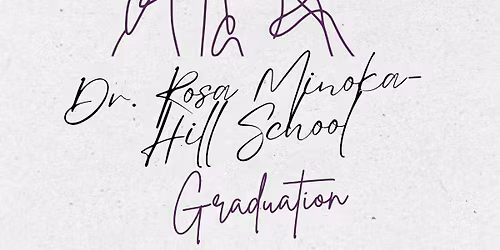 Dr. Rosa Minoka-
Hill School
Graduation